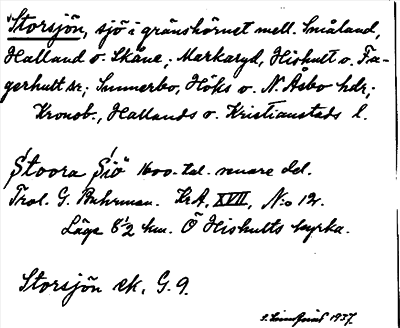 Storsjön, sjö i gränshörnet mell. Småland,
Halland o. Skåne; Markaryd, Hishult o. Fa-
gerhult sr; Sunnerbo, Höks o. N. Åsbo hdr;
Kronob., Hallands o. Kristianstads l.
Stoora Siö 1600-tal. senare del.
Trol. G. Buhrman. KrA, XVII, N:o 12.
Läge 6½ km. Ö Hishults kyrka.
Storsjön ek. G. 9.
1937.